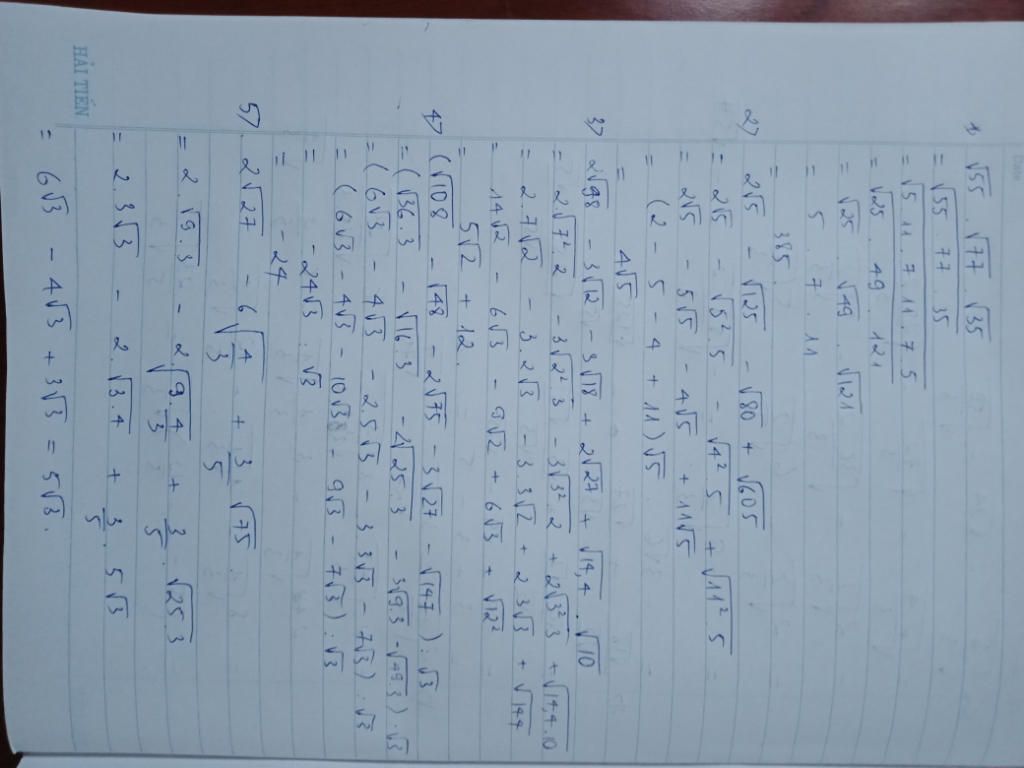 1) √55 . √77 . √35
= √55 . 77 . 35
= √5 . 11 . 7 . 11 . 7 . 5
= √25 . 49 . 121
= √25 . √49 . √121
= 5 . 7 . 11
= 385.
2) 2√5 - √125 - √80 + √605
= 2√5 - √5² . 5 - √4² 5 + √11² . 5
= 2√5 - 5√5 - 4√5 + 11√5
= (2 - 5 - 4 + 11)√5
= 4√5
3) 2√98 - 3√12 - 3√18 + 2√27 + √14,4 . √10
= 2√7² . 2 - 3√2² . 3 - 3√3² . 2 + 2√3² . 3 + √14,4 . 10
= 2 . 7√2 - 3 . 2√3 - 3 . 3√2 + 2 . 3√3 + √144
= 14√2 - 6√3 - 9√2 + 6√3 + √12²
= 5√2 + 12.
4) (√108 - √48 - 2√75 - 3√27 - √147) : √3
= (√36 . 3 - √16 . 3 - 2√25 . 3 - 3√9 3 - √49 . 3) : √3
= (6√3 - 4√3 - 2.5√3 - 3 3√3 - 7√3) : √3
= (6√3 - 4√3 - 10√3 - 9√3 - 7√3) : √3
= -24√3 : √3
= -24
5) 2√27 - 6√4/3 + 3/5 √75
= 2 . √9 . 3 - 2 . √9 . 4/3 + 3/5 . √25 3
= 2 . 3√3 - 2 . √3 . 4 + 3/5 . 5√3
= 6√3 - 4√3 + 3√3 = 5√3 .
HẢI TIẾN